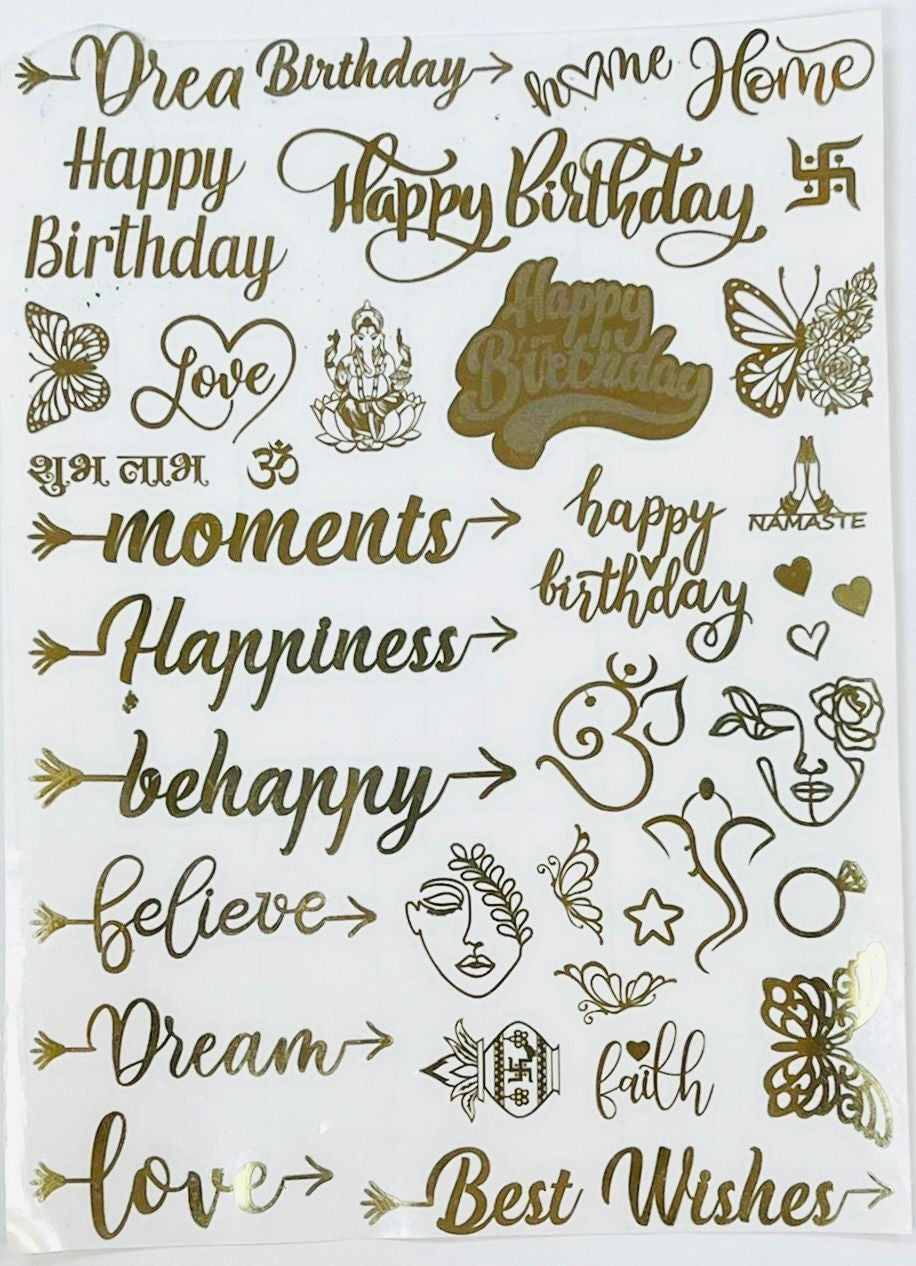 Drea Birthday
home Home
Happy
Birthday
Happy Birthday
Happy
Birthday
Love
शुभ लाभ
ॐ
NAMASTE
moments
happy
birthday
Happiness
ॐ
behappy
believe
Dream
faith
love
Best Wishes